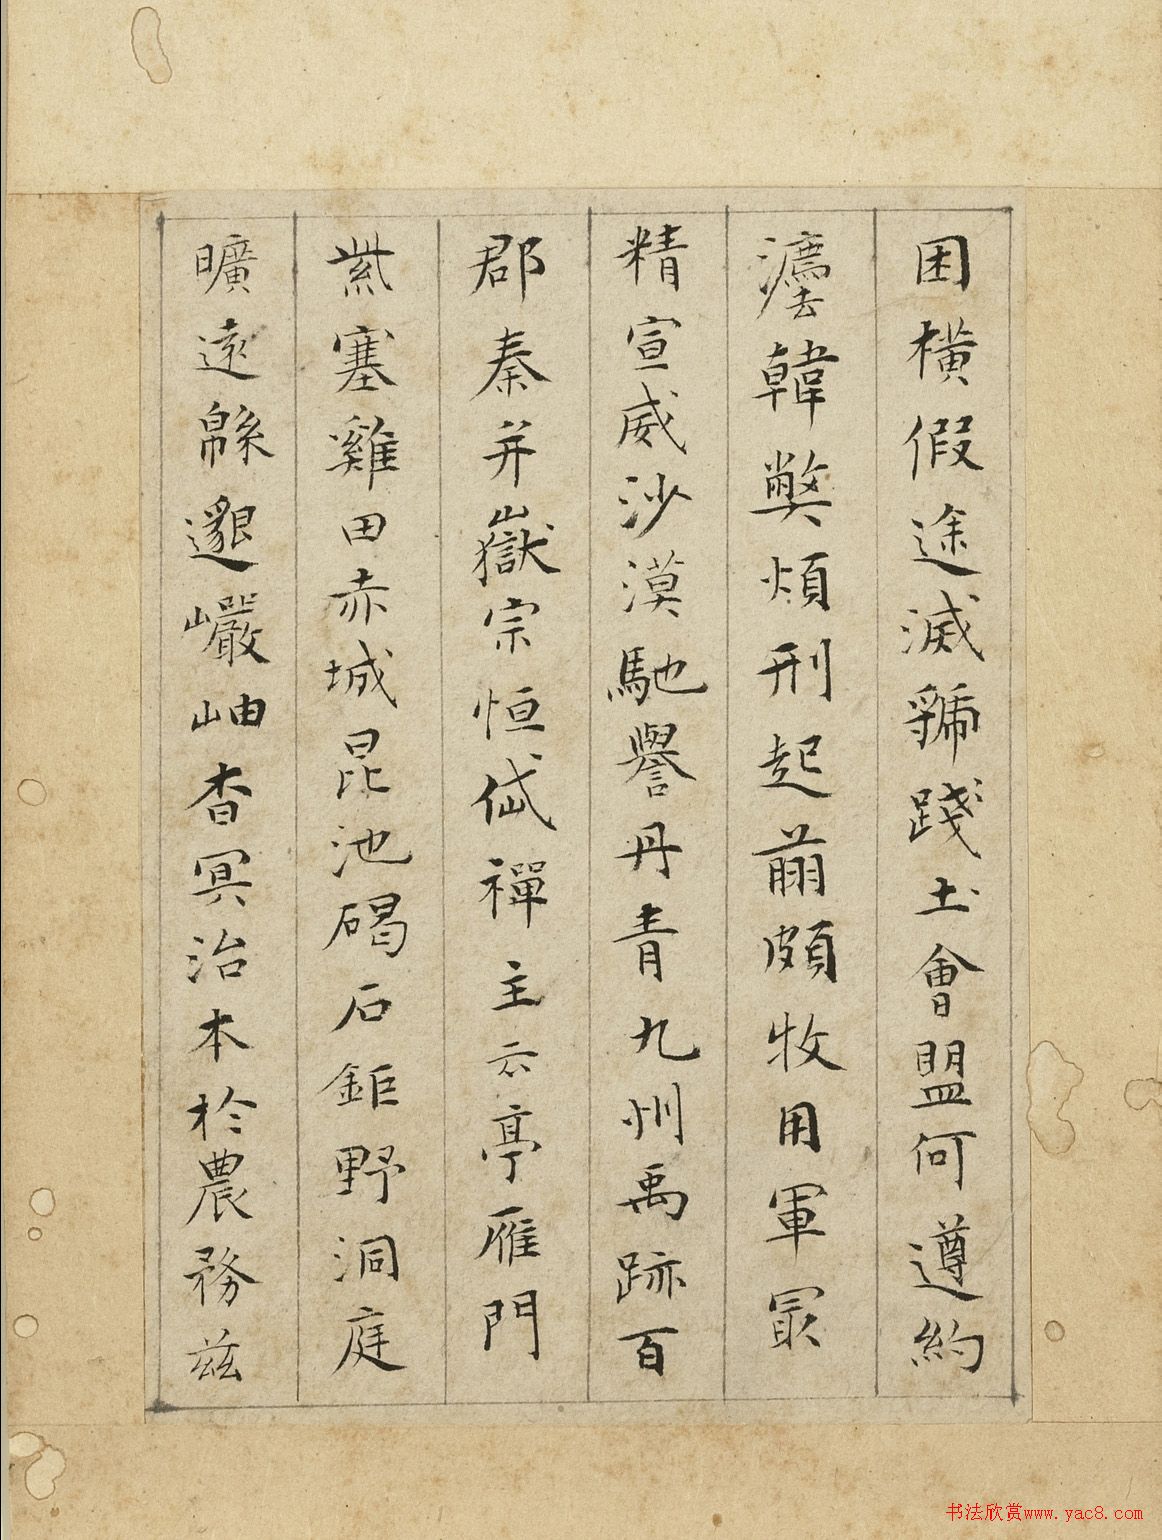 困橫假途滅虢踐土會盟何遵約
灋韓弊煩刑起翦頗牧用軍冣
精宣威沙漠馳譽丹青九州禹跡百
郡秦并嶽宗恒岱禪主云亭雁門
紫塞雞田赤城昆池碣石鉅野洞庭
曠遠緜邈巖岫杳冥治本於農務茲
书法欣赏www.yac8.com